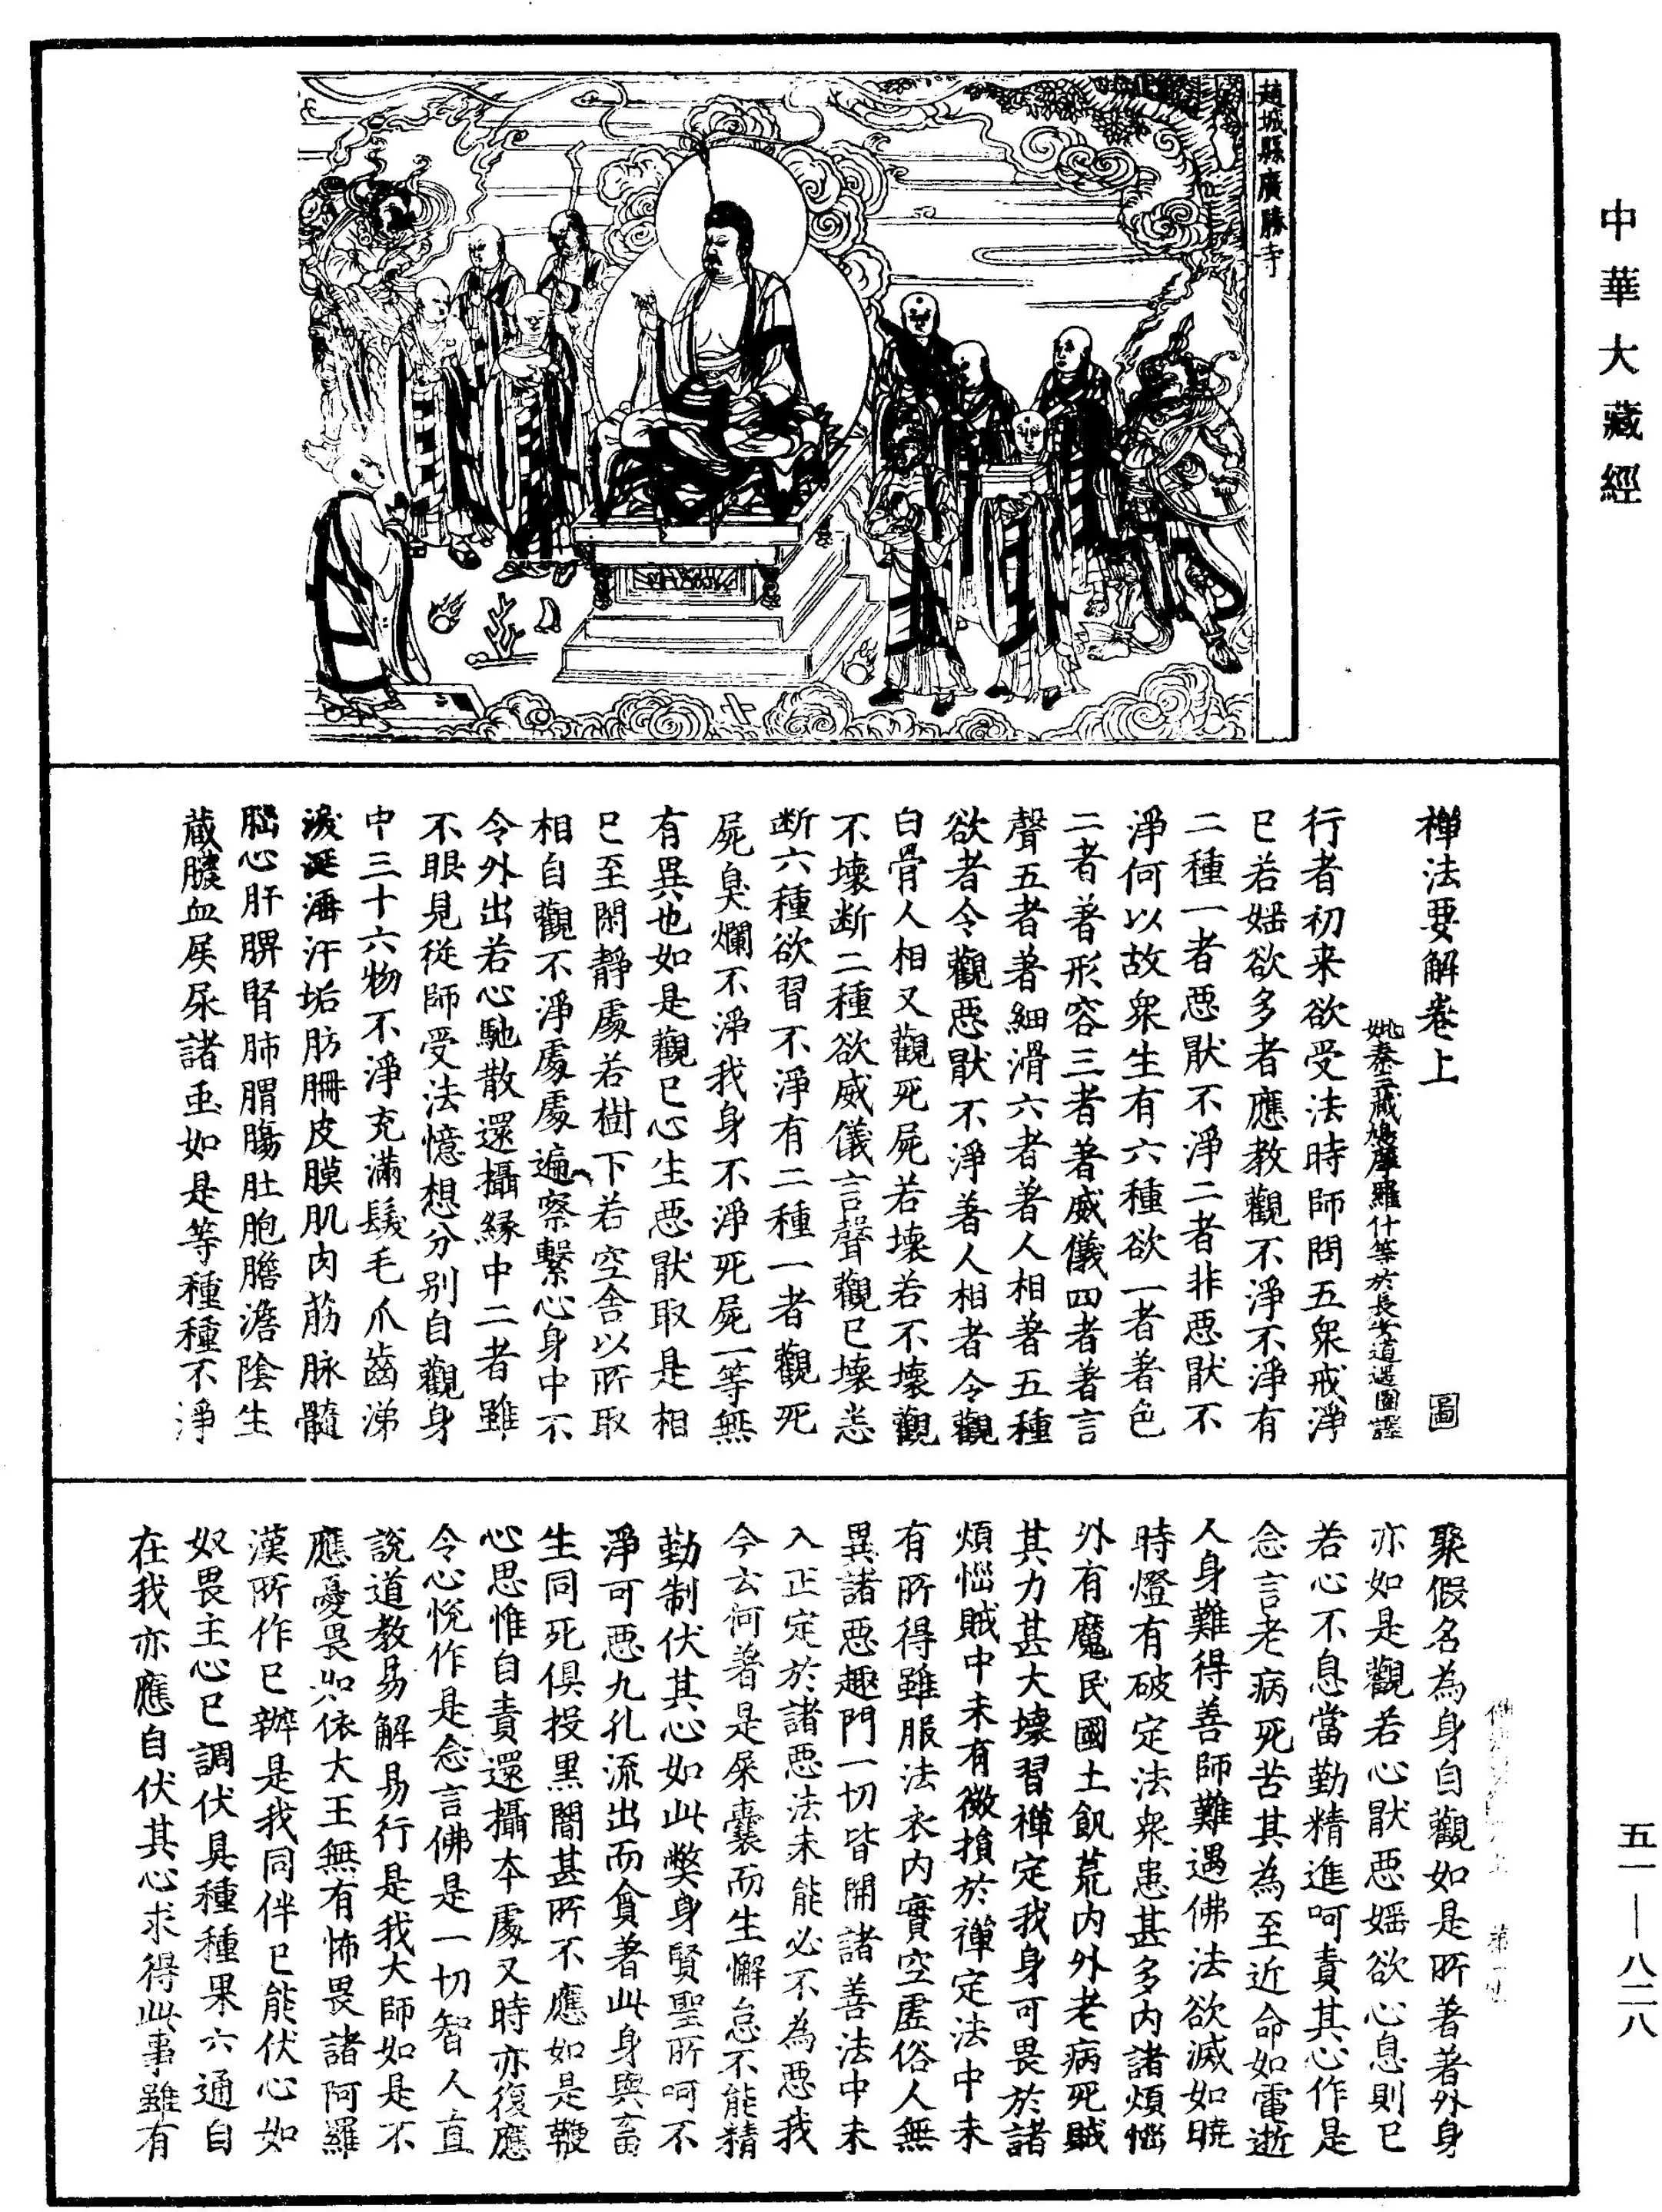 中華大藏經
趙城縣廣勝寺
禪法要解卷上 圖
姚秦三藏鳩摩羅什等於長安逍遙園譯
行者初来欲受法時師問五衆戒淨
巳若婬欲多者應教觀不淨不淨有
二種一者惡猒不淨二者非惡猒不
淨何以故衆生有六種欲一者著色
二者著形容三者著威儀四者著言
聲五者著細滑六者著人相著五種
欲者令觀惡猒不淨著人相者令觀
白骨人相又觀死屍若壞若不壞觀
不壞断二種欲威儀言聲觀巳壞悉
断六種欲習不淨有二種一者觀死
屍臭爛不淨我身不淨死屍一等無
有異也如是觀巳心生惡猒取是相
巳至閑靜處若樹下若空舍以所取
相自觀不淨處處遍察繫心身中不
令外出若心馳散還攝緣中二者雖
不眼見從師受法憶想分別自觀身
中三十六物不淨充滿髮毛爪齒涕
淚涎洟汗垢肪𦙱皮膜肌肉筋脉髓
腦心肝脾腎肺胃腸肚胞膽澹陰生
藏膿血屎尿諸虫如是等種種不淨
聚假名為身自觀如是所著著外身
亦如是觀若心猒惡婬欲心息則巳
若心不息當勤精進呵責其心作是
念言老病死苦其為至近命如電逝
人身難得善師難遇佛法欲滅如曉
時燈有破定法衆患甚多內諸煩惱
外有魔民國土飢荒內外老病死賊
其力甚大壞習禪定我身可畏於諸
煩惱賊中未有微損於禪定法中未
有所得雖服法衣內實空虛俗人無
異諸惡趣門一切皆開諸善法中未
入正定於諸惡法未能必不為惡我
今云何著是屎囊而生懈怠不能精
勤制伏其心如此弊身賢聖所呵不
淨可惡九孔流出而貪著此身與畜
生同死俱投黑闇甚所不應如是鞭
心思惟自責還攝本處又時亦復應
令心悅作是念言佛是一切智人直
說道教易解易行是我大師如是不
應憂畏如依大王無有怖畏諸阿羅
漢所作巳辦是我同伴巳能伏心如
奴畏主心巳調伏具種種果六通自
在我亦應自伏其心求得此事雖有
五一—八二八